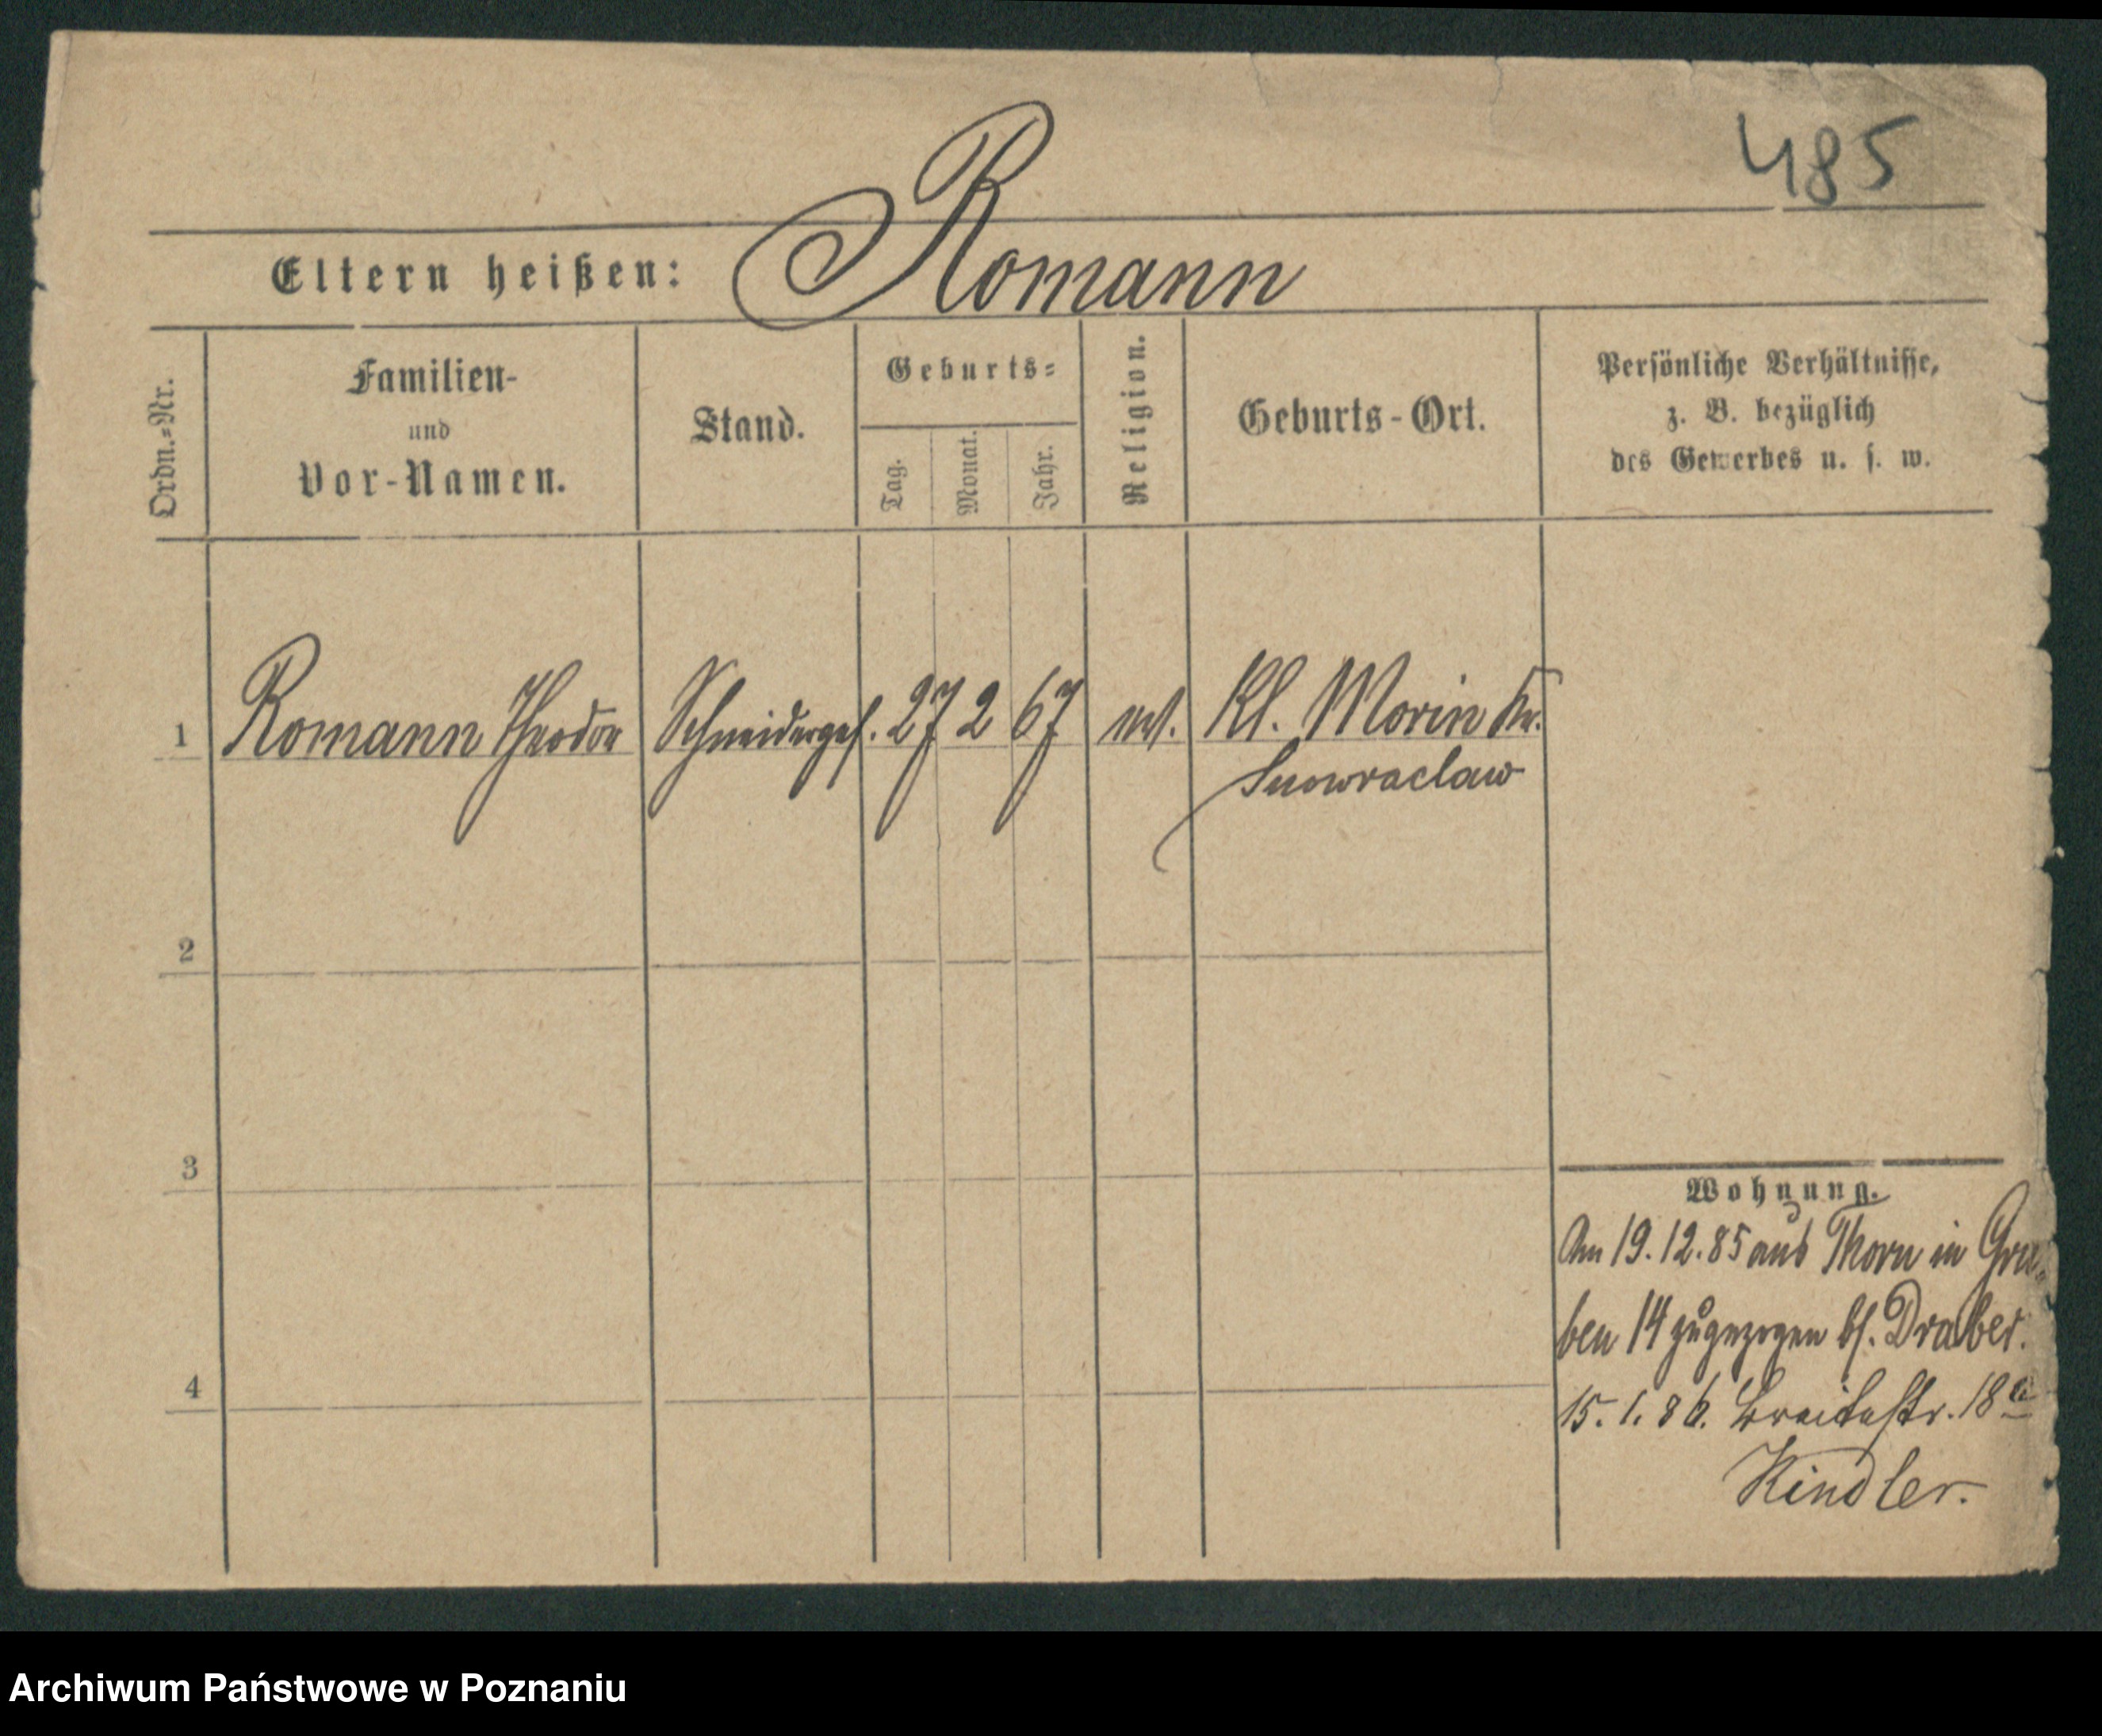 485
Eltern heißen: Romann
Ordn.=Nr.
Familien-
und
Vor-Namen.
Stand.
Geburts=
Tag.
Monat.
Jahr.
Religion.
Geburts-Ort.
Persönliche Verhältnisse,
z. B. bezüglich
des Gewerbes u. s. w.
1 Romann Theodor Schneiderges. 27 2 67 Kl. Morin Kr.
Inowraclaw
2
3
4
Wohnung.
Am 19.12.85 aus Thorn in Gra
ben 14 zugezogen bs. Draber.
15.1.86. Breitestr. 18a
Kindler.
Archiwum Państwowe w Poznaniu